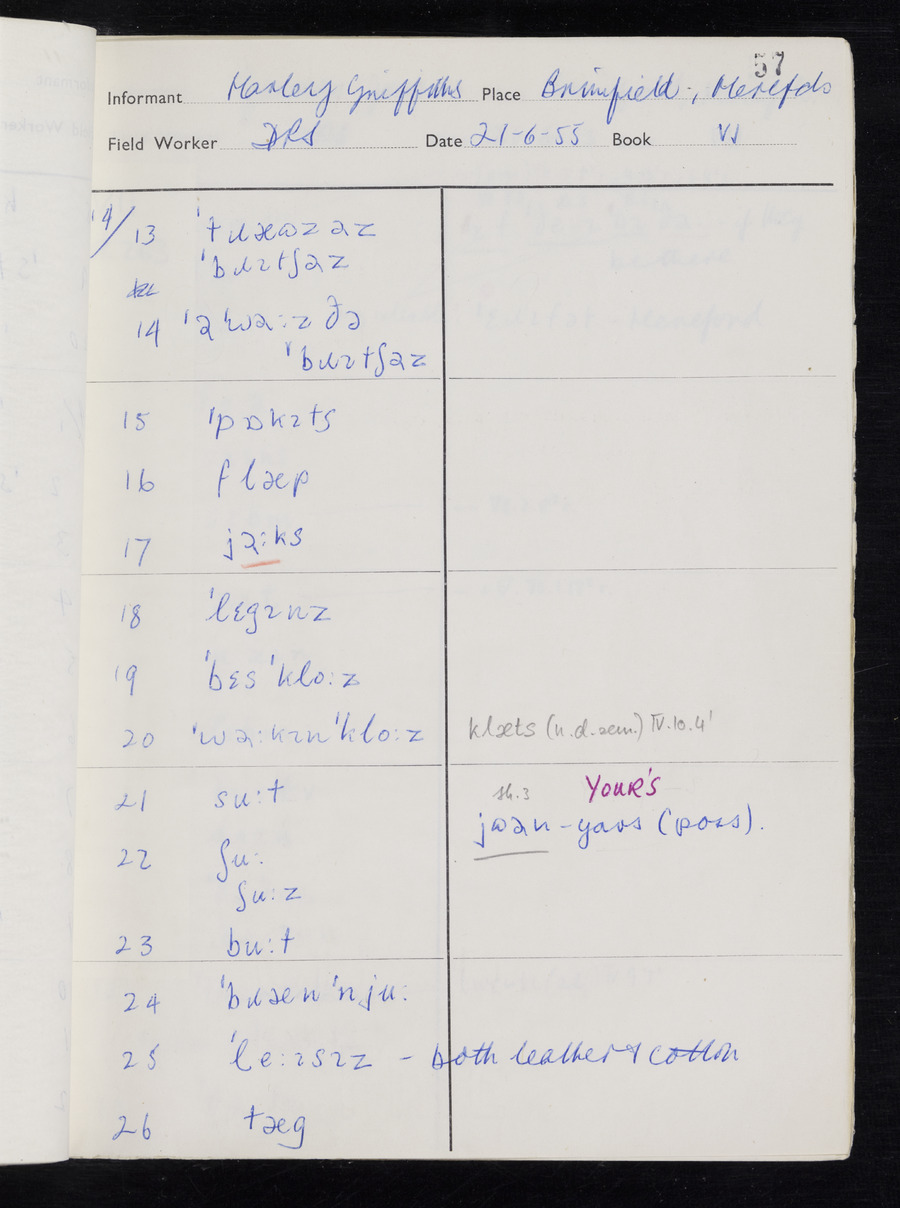 57
Informant Harley Griffiths Place Brimfield, Herefds
Field Worker DRS Date 21-6-55 Book VI
14/ 13 ˈtɹæʊzəz
ˈbɹɪtʃəz
14 ˈəˈwə:z ðə
ˈbɹɪtʃəz
15 ˈpɒkɪts
16 flæp
17 jə:ks
18 ˈlɛgɪnz
19 ˈbɛsˈklo:z
20 ˈwə:kɪnˈklo:z klæts (n.d.sem.) IV.10.4
21 su:t
sh.3 YOUR'S
jʊən - yours (poss).
22 ʃu:
ʃu:z
23 bu:t
24 ˈbɹæn ˈnju:
25 ˈle:ɪsɪz - both leather & cotton
26 tæg